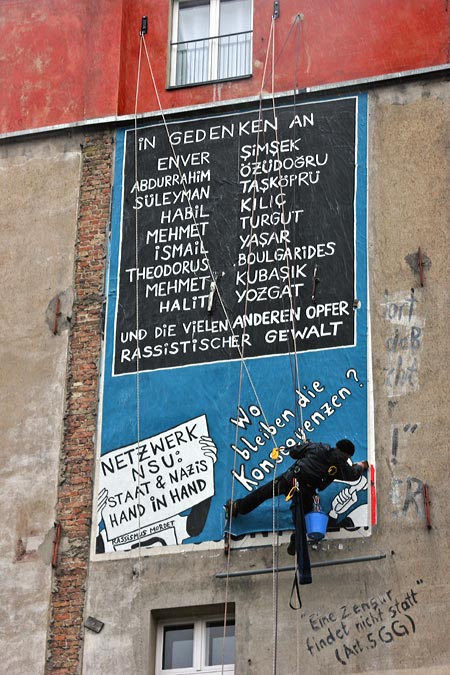 IN GEDENKEN AN
ENVER ŞIMŞEK
ABDURRAHIM ÖZÜDOĞRU
SÜLEYMAN TAŞKÖPRÜ
HABIL KILIÇ
MEHMET TURGUT
İSMAIL YAŞAR
THEODORUS BOULGARIDES
MEHMET KUBAŞIK
HALIT YOZGAT
UND DIE VIELEN ANDEREN OPFER
RASSISTISCHER GEWALT
Wo
bleiben die
Konsequenzen?
NETZWERK
NSU:
STAAT & NAZIS
HAND IN HAND
RASSISMUS MORDET
"Eine Zensur
findet nicht statt"
(Art. 5 GG)